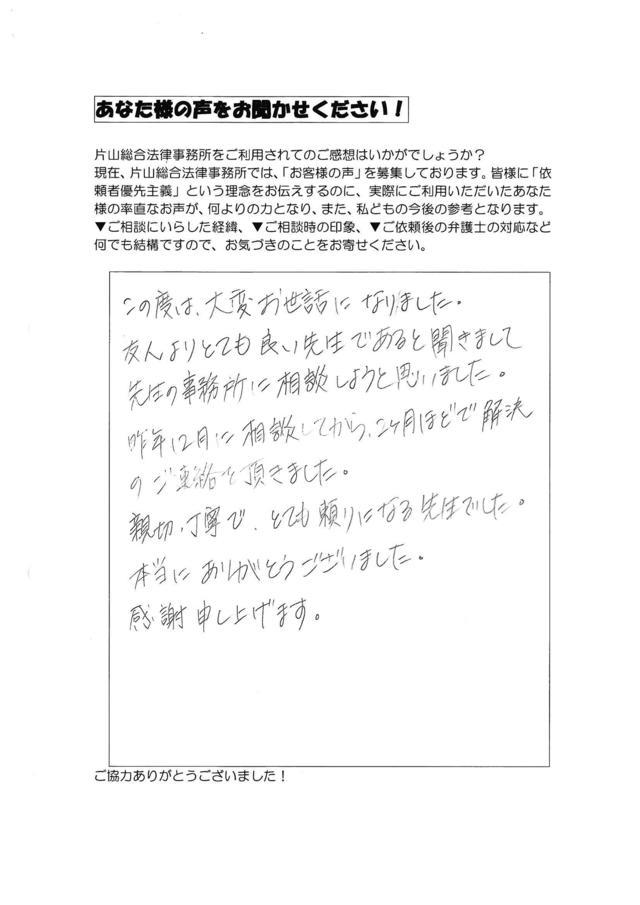 あなた様の声をお聞かせください！
片山総合法律事務所をご利用されてのご感想はいかがでしょうか？
現在、片山総合法律事務所では、「お客様の声」を募集しております。皆様に「依
頼者優先主義」という理念をお伝えするのに、実際にご利用いただいたあなた
様の率直なお声が、何よりの力となり、また、私どもの今後の参考となります。
▼ご相談にいらした経緯、▼ご相談時の印象、▼ご依頼後の弁護士の対応など
何でも結構ですので、お気づきのことをお寄せください。
この度は、大変お世話になりました。
友人よりとても良い先生であると聞きまして
先生の事務所に相談しようと思いました。
昨年12月に相談してから、2ヶ月ほどで解決
のご連絡を頂きました。
親切、丁寧で、とても頼りになる先生でした。
本当にありがとうございました。
感謝申し上げます。
ご協力ありがとうございました！